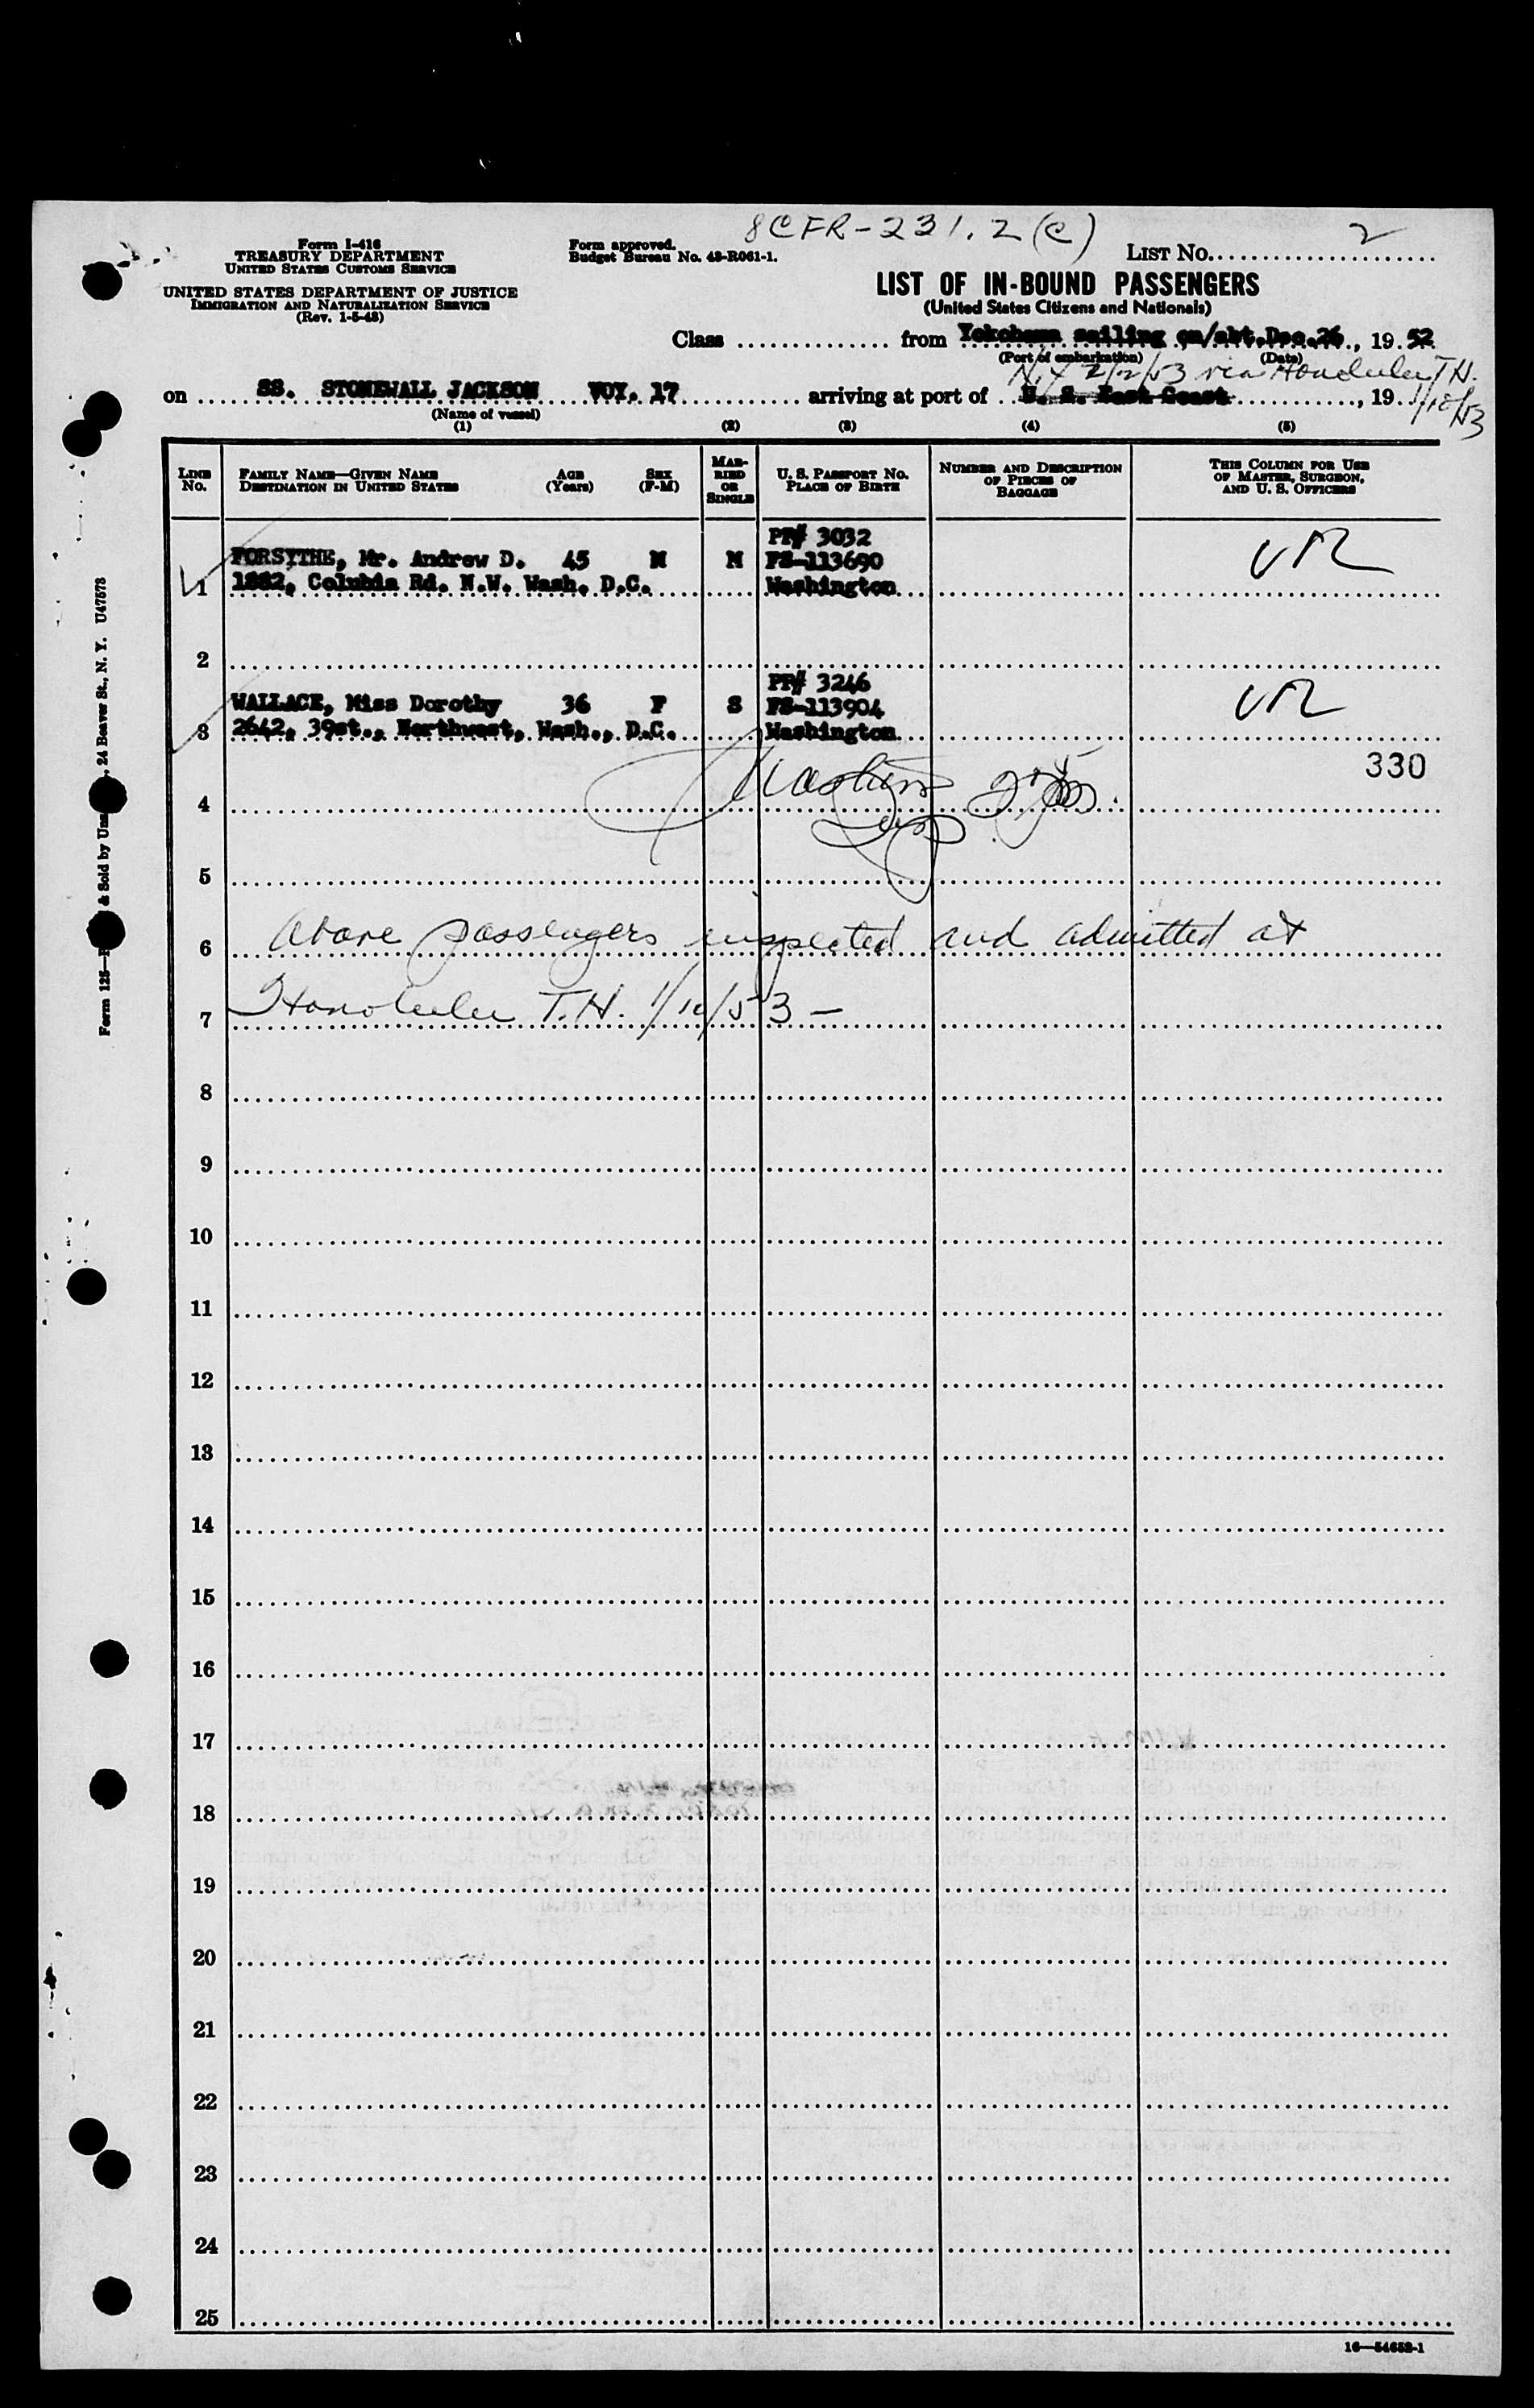 8 CFR-231.2(c)
Form I-416
TREASURY DEPARTMENT
UNITED STATES CUSTOMS SERVICE
UNITED STATES DEPARTMENT OF JUSTICE
IMMIGRATION AND NATURALIZATION SERVICE
(Rev. 1-5-48)
Form approved.
Budget Bureau No. 43-R061-1.
LIST No. 2
LIST OF IN-BOUND PASSENGERS
(United States Citizens and Nationals)
Class from Yokohama sailing on/abt.Dec.26, 19 52
(Port of embarkation) (Date)
N.Y 2/12/53 via Honolulu T.H.
on SS. STONEWALL JACKSON VOY. 17 arriving at port of U. S. East Coast, 19 1/10/53
(Name of vessel)
(1) (2) (3) (4) (5)
LINE No.
FAMILY NAME—GIVEN NAME AGE SEX
DESTINATION IN UNITED STATES (Years) (F-M)
MARRIED OR SINGLE
U. S. PASSPORT No.
PLACE OF BIRTH
NUMBER AND DESCRIPTION OF PIECES OF BAGGAGE
THIS COLUMN FOR USE OF MASTER, SURGEON, AND U. S. OFFICERS
PP# 3032
FORSYTHE, Mr. Andrew D. 45 M M FS-113690
1 1882, Columbia Rd. N.W. Wash. D.C. Washington
2
PP# 3246
WALLACE, Miss Dorothy 36 F S FS-113904
3 2642, 39st., Northwest, Wash., D.C. Washington
330
4
5
6 Above passengers inspected and admitted at
7 Honolulu T.H. 1/10/53 —
8
9
10
11
12
13
14
15
16
17
18
19
20
21
22
23
24
25
16—54652-1
Form 125— & Sold by , 24 Beaver St., N. Y. U47578